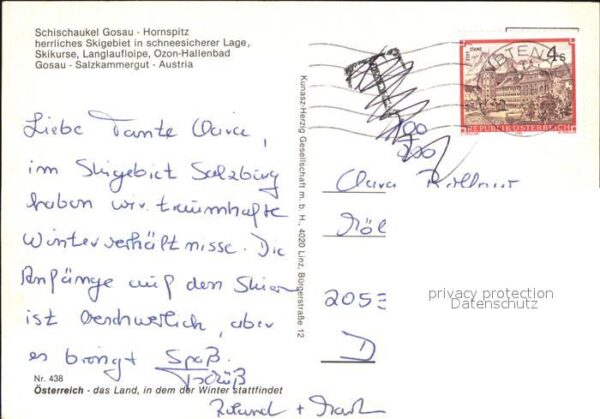 Schischaukel Gosau - Hornspitz
herrliches Skigebiet in schneesicherer Lage,
Skikurse, Langlaufloipe, Ozon-Hallenbad
Gosau - Salzkammergut - Austria
4 S
REPUBLIK ÖSTERREICH
Liebe Tante Clara,
im Skigebiet Salzburg
haben wir traumhafte
Winterverhältnisse. Die
Anfänge auf den Skiern
ist beschwerlich, aber
es bringt Spaß.
Tschüß
Roland +
Kunasz-Herzig Gesellschaft m. b. H., 4020 Linz, Bürgerstraße 12
Clara
Möl
2053
D
privacy protection
Datenschutz
Nr. 438
Österreich - das Land, in dem der Winter stattfindet